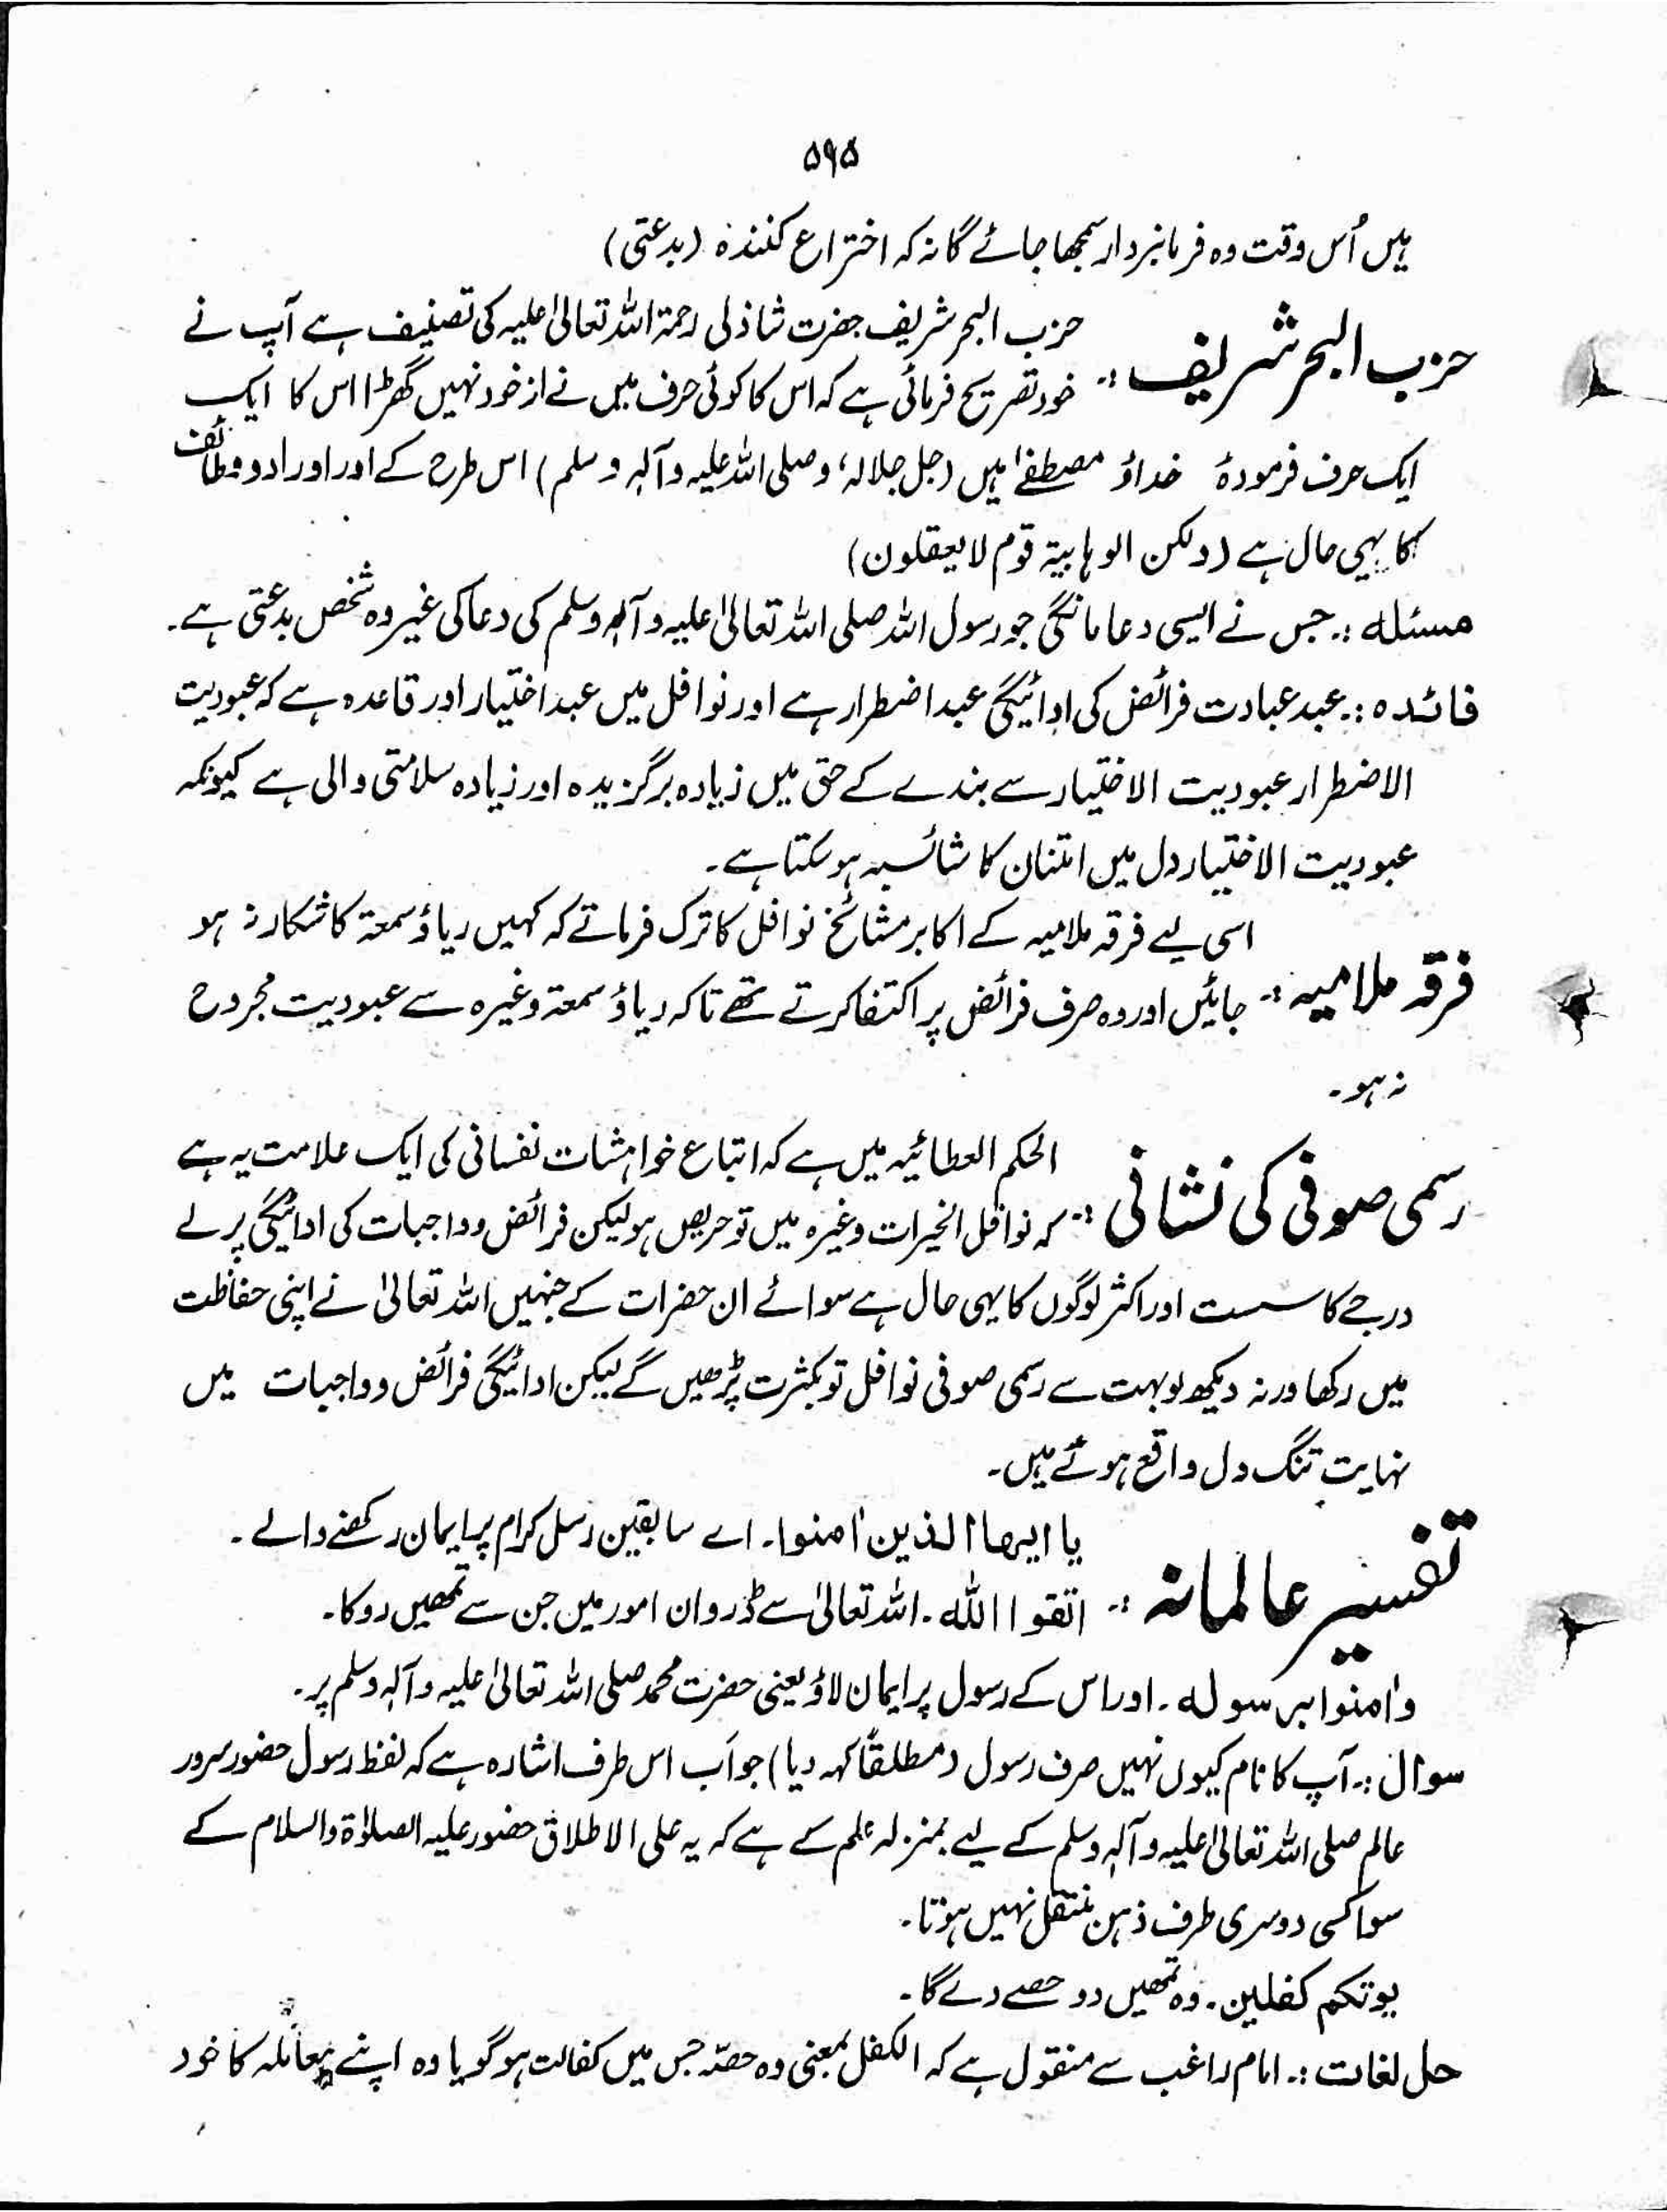 ۵۹۵
ہیں اُس وقت وہ فرمانبردار سمجھا جائے گا نہ کہ اختراع کنندہ (بدعتی)
حزب البحر شریف :- حزب البحر شریف حضرت شاذلی رحمۃ اللہ تعالیٰ علیہ کی تصنیف ہے آپ نے
خود تصریح فرمائی ہے کہ اس کا کوئی حرف میں نے از خود نہیں گھڑا اس کا ایک
ایک حرف فرمودۂ خدا و مصطفےٰ ہیں (جل جلالہ، وصلی اللہ علیہ وآلہ وسلم) اس طرح کے اور اوراد و وظائف
کا یہی حال ہے (ولکن الوہابیۃ قوم لا یعقلون)
مسئلہ :- جس نے ایسی دعا مانگی جو رسول اللہ صلی اللہ تعالیٰ علیہ وآلہ وسلم کی دعا کی غیر وہ شخص بدعتی ہے۔
فائدہ :- عبد عبادت فرائض کی ادائیگی عبد اضطرار ہے اور نوافل میں عبد اختیار اور قاعدہ ہے کہ عبودیت
الاضطرار عبودیت الاختیار سے بندے کے حق میں زیادہ برگزیدہ اور زیادہ سلامتی والی ہے کیونکہ
عبودیت الاختیار دل میں امتنان کا شائبہ ہو سکتا ہے۔
فرقہ ملامیہ :- اسی لیے فرقہ ملامیہ کے اکابر مشائخ نوافل کا ترک فرماتے کہ کہیں ریاؤ سمعۃ کا شکار نہ ہو
جائیں اور وہ صرف فرائض پر اکتفا کرتے تھے تاکہ ریاؤ سمعۃ وغیرہ سے عبودیت مجروح
نہ ہو۔
رسمی صوفی کی نشانی :- الحکم العطائیہ میں ہے کہ اتباع خواہشات نفسانی کی ایک علامت یہ ہے
کہ نوافل الخیرات وغیرہ میں تو حریص ہو لیکن فرائض و واجبات کی ادائیگی پر لے
درجے کا سست اور اکثر لوگوں کا یہی حال ہے سوائے ان حضرات کے جنہیں اللہ تعالیٰ نے اپنی حفاظت
میں رکھا ورنہ دیکھ لو بہت سے رسمی صوفی نوافل تو بکثرت پڑھیں گے لیکن ادائیگی فرائض و واجبات میں
نہایت تنگ دل واقع ہوئے ہیں۔
تفسیر عالمانہ :- یا ایھا الذین اٰمنوا۔ اے سابقین رسل کرام پر ایمان رکھنے والے۔
اتقوا اللّٰہ۔ اللہ تعالیٰ سے ڈرو ان امور میں جن سے تمھیں روکا۔
واٰمنوا برسولہ۔ اور اس کے رسول پر ایمان لاؤ یعنی حضرت محمد صلی اللہ تعالیٰ علیہ وآلہ وسلم پر۔
سوال :- آپ کا نام کیوں نہیں صرف رسول (مطلقاً کہہ دیا) جواب اس طرف اشارہ ہے کہ لفظ رسول حضور سرور
عالم صلی اللہ تعالیٰ علیہ وآلہ وسلم کے لیے بمنزلہ علم کے ہے کہ یہ علی الاطلاق حضور علیہ الصلوٰۃ والسلام کے
سوا کسی دوسری طرف ذہن منتقل نہیں ہوتا۔
یوتکم کفلین۔ وہ تمھیں دو حصے دے گا۔
حل لغات :- امام راغب سے منقول ہے کہ الکفل بمعنی وہ حصّہ جس میں کفالت ہو گویا وہ اپنے معاملہ کا خود